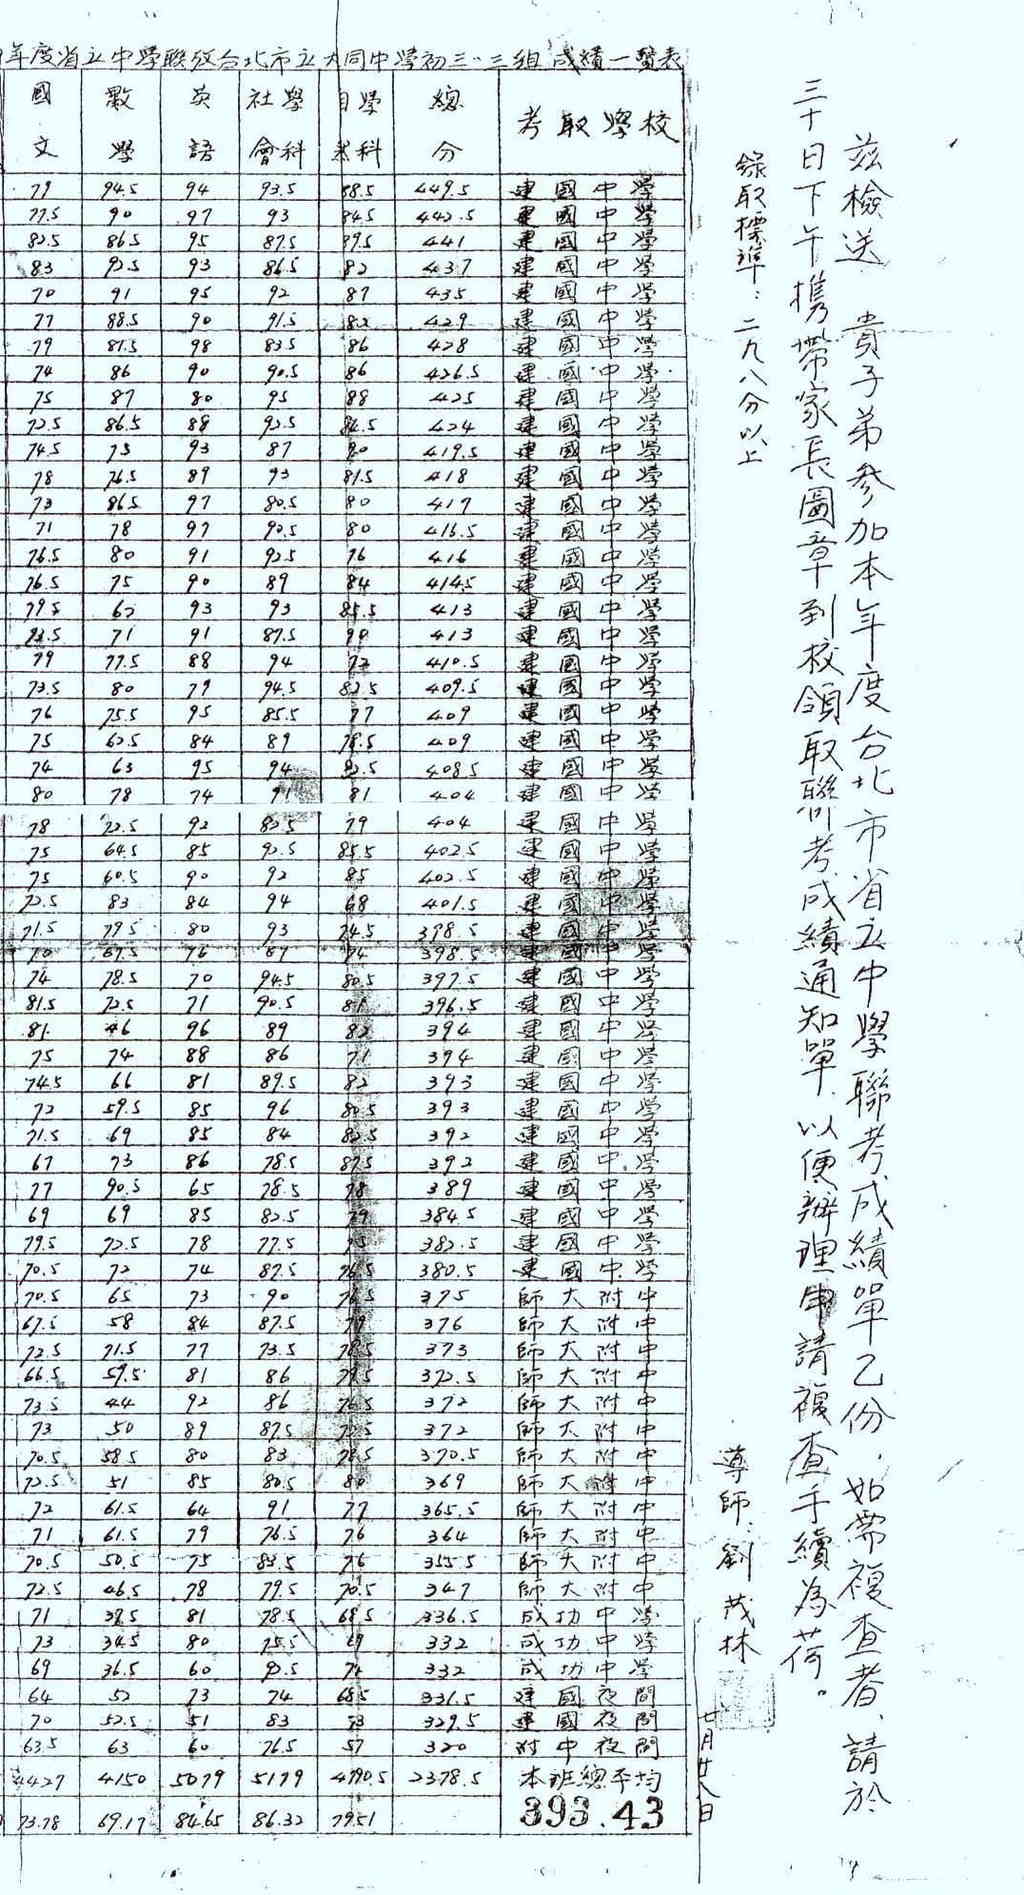 年度省立中學聯考台北市立大同中學初三.三組 成績一覽表
國文 數學 英語 社會學科 自然學科 總分 考取學校
79 94.5 94 93.5 88.5 449.5 建國中學
77.5 90 97 93 84.5 442.5 建國中學
82.5 86.5 95 87.5 89.5 441 建國中學
83 92.5 93 86.5 82 437 建國中學
70 91 95 92 87 435 建國中學
77 88.5 90 91.5 82 429 建國中學
79 81.5 98 83.5 86 428 建國中學
74 86 90 90.5 86 426.5 建國中學
75 87 80 95 88 425 建國中學
72.5 86.5 88 92.5 84.5 424 建國中學
74.5 75 93 87 90 419.5 建國中學
78 76.5 89 93 81.5 418 建國中學
73 86.5 97 80.5 80 417 建國中學
71 78 97 90.5 80 416.5 建國中學
76.5 80 91 92.5 76 416 建國中學
76.5 75 90 89 84 414.5 建國中學
79.5 62 93 93 85.5 413 建國中學
73.5 71 91 87.5 90 413 建國中學
79 77.5 88 94 72 410.5 建國中學
73.5 80 79 94.5 82.5 409.5 建國中學
76 75.5 95 85.5 77 409 建國中學
75 84 89 78.5 409 建國中學
74 63 95 94 82.5 408.5 建國中學
80 78 74 91 81 404 建國中學
78 72.5 92 82.5 79 404 建國中學
75 64.5 85 92.5 85.5 402.5 建國中學
75 60.5 90 92 85 402.5 建國中學
72.5 83 84 94 68 401.5 建國中學
71.5 79.5 80 93 74.5 398.5 建國中學
70 76 74 398.5 建國中學
74 78.5 70 94.5 80.5 397.5 建國中學
81.5 72.5 71 90.5 81 396.5 建國中學
81 46 96 89 82 394 建國中學
75 74 88 86 71 394 建國中學
74.5 66 81 89.5 82 393 建國中學
72 59.5 85 96 80.5 393 建國中學
71.5 69 85 84 82.5 392 建國中學
67 73 86 78.5 87.5 392 建國中學
77 90.5 65 78.5 78 389 建國中學
69 69 85 82.5 79 384.5 建國中學
79.5 72.5 78 77.5 75 382.5 建國中學
70.5 72 74 87.5 76.5 380.5 建國中學
70.5 65 73 90 76.5 375 師大附中
67.5 58 84 87.5 79 376 師大附中
72.5 71.5 77 73.5 78.5 373 師大附中
66.5 59.5 81 86 79.5 372.5 師大附中
73.5 44 92 86 76.5 372 師大附中
73 50 89 87.5 72.5 372 師大附中
70.5 58.5 80 83 78.5 370.5 師大附中
72.5 51 85 80.5 80 369 師大附中
72 61.5 64 91 77 365.5 師大附中
71 61.5 79 76.5 76 364 師大附中
70.5 50.5 75 83.5 76 355.5 師大附中
72.5 46.5 78 79.5 70.5 347 師大附中
71 81 78.5 68.5 336.5 成功中學
73 34.5 80 75.5 69 332 成功中學
69 36.5 60 92.5 74 332 成功中學
64 52 73 74 68.5 331.5 建國夜間
70 52.5 51 83 73 329.5 建國夜間
63.5 63 60 76.5 57 320 附中夜間
4427 4150 5079 5179 4790.5 2378.5 本班總平均
73.78 69.17 84.65 86.32 79.51 393.43
茲檢送 貴子弟參加本年度台北市省立中學聯考成績單乙份，如需複查者，請於
三十日下午攜帶家長圖章到校領取聯考成績通知單，以便辦理申請複查手續為荷。
錄取標準：二九八分以上
導師：劉茂林
月廿八日